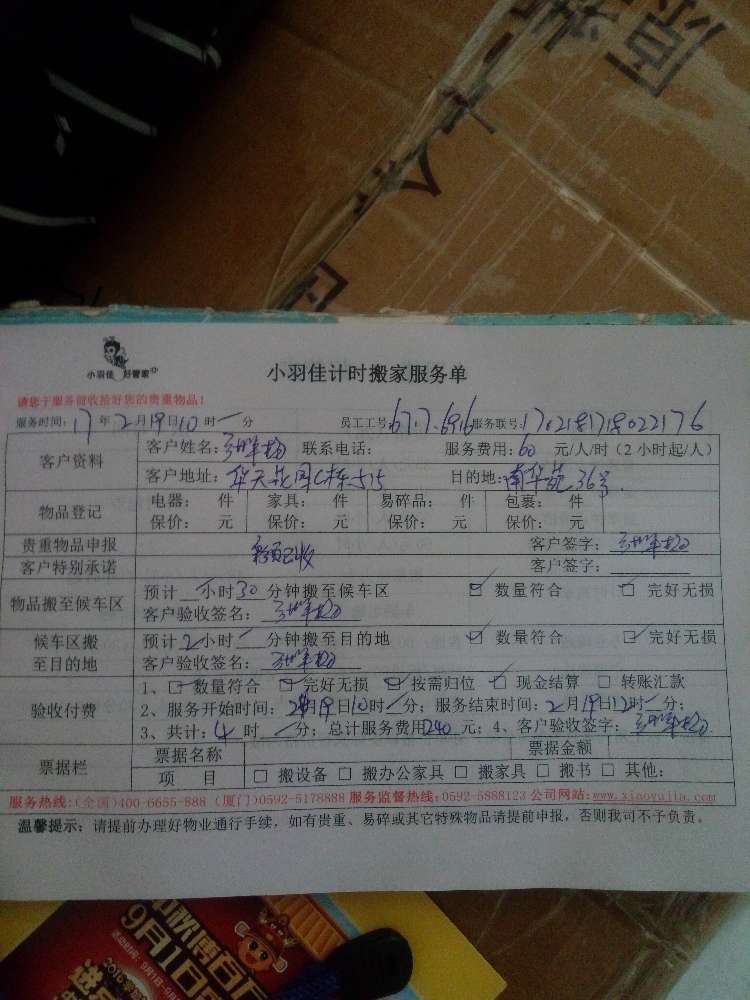 小羽佳 好管家
小羽佳计时搬家服务单
请您于服务前收拾好您的贵重物品!
服务时间:17年2月19日10时一分 员工工号:67.7.6916 服务联号:1702181718022176
客户资料 客户姓名: 联系电话: 服务费用:60 元/人/时(2小时起/人)
客户地址:华天花园C栋515 目的地:南华苑36号
物品登记 电器: 件 家具: 件 易碎品: 件 包裹: 件
保价: 元 保价: 元 保价: 元 保价: 元
贵重物品申报 客户签字:
客户特别承诺 已收 客户签字:
物品搬至候车区 预计 小时30分钟搬至候车区 ☑ 数量符合 ☐ 完好无损
客户验收签名:
候车区搬至目的地 预计2小时一分钟搬至目的地 ☑ 数量符合 ☑ 完好无损
客户验收签名:
验收付费 1、☑ 数量符合 ☑ 完好无损 ☑ 按需归位 ☑ 现金结算 ☐ 转账汇款
2、服务开始时间:2月19日10时一分;服务结束时间:2月19日12时一分;
3、共计:4时一分;总计服务费用240元;4、客户验收签字:
票据栏 票据名称 票据金额
项 目 ☐ 搬设备 ☐ 搬办公家具 ☐ 搬家具 ☐ 搬书 ☐ 其他:
服务热线:(全国)400-6655-888 (厦门)0592-5178888 服务监督热线:0592-5888123 公司网站:www.xiaoyujia.com
温馨提示:请提前办理好物业通行手续,如有贵重、易碎或其它特殊物品请提前申报,否则我司不予负责。
9月1日